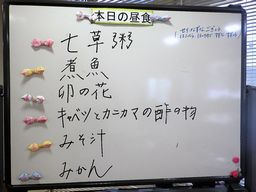 本日の昼食
七草粥
煮魚
卵の花
キャベツとカニカマの酢の物
みそ汁
みかん